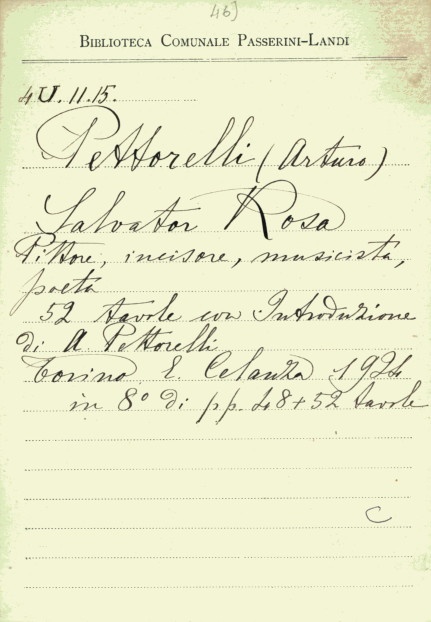 46)
BIBLIOTECA COMUNALE PASSERINI-LANDI
4U.11.15.
Pettorelli (Arturo)
Salvator Rosa
Pittore, incisore, musicista,
poeta
52 tavole con Introduzione
di A Pettorelli
Torino E. Celanza 1924
in 8° di pp. 48+52 tavole
C